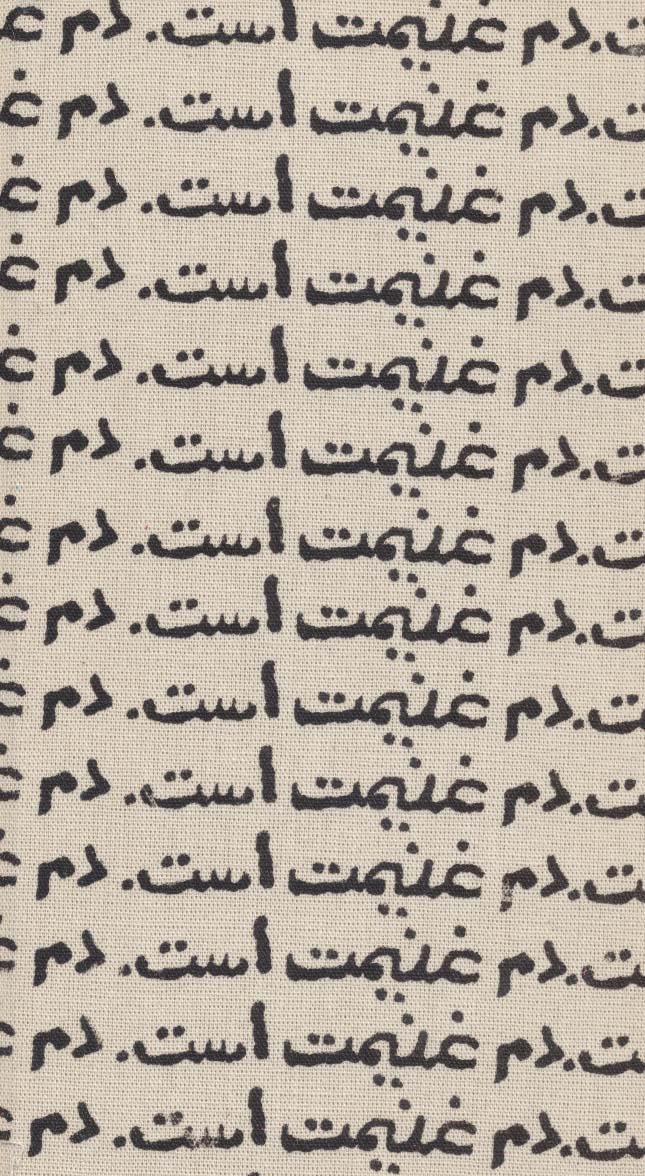 دم غنیمت است. دم
دم غنیمت است. دم
دم غنیمت است. دم
دم غنیمت است. دم
دم غنیمت است. دم
دم غنیمت است. دم
دم غنیمت است. دم
دم غنیمت است. دم
دم غنیمت است. دم
دم غنیمت است. دم
دم غنیمت است. دم
دم غنیمت است. دم
دم غنیمت است. دم
دم غنیمت است. دم